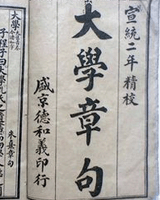 宣統二年精校
大學章句
盛京德和義印行
大學
朱熹章句
子程子曰大學孔氏之